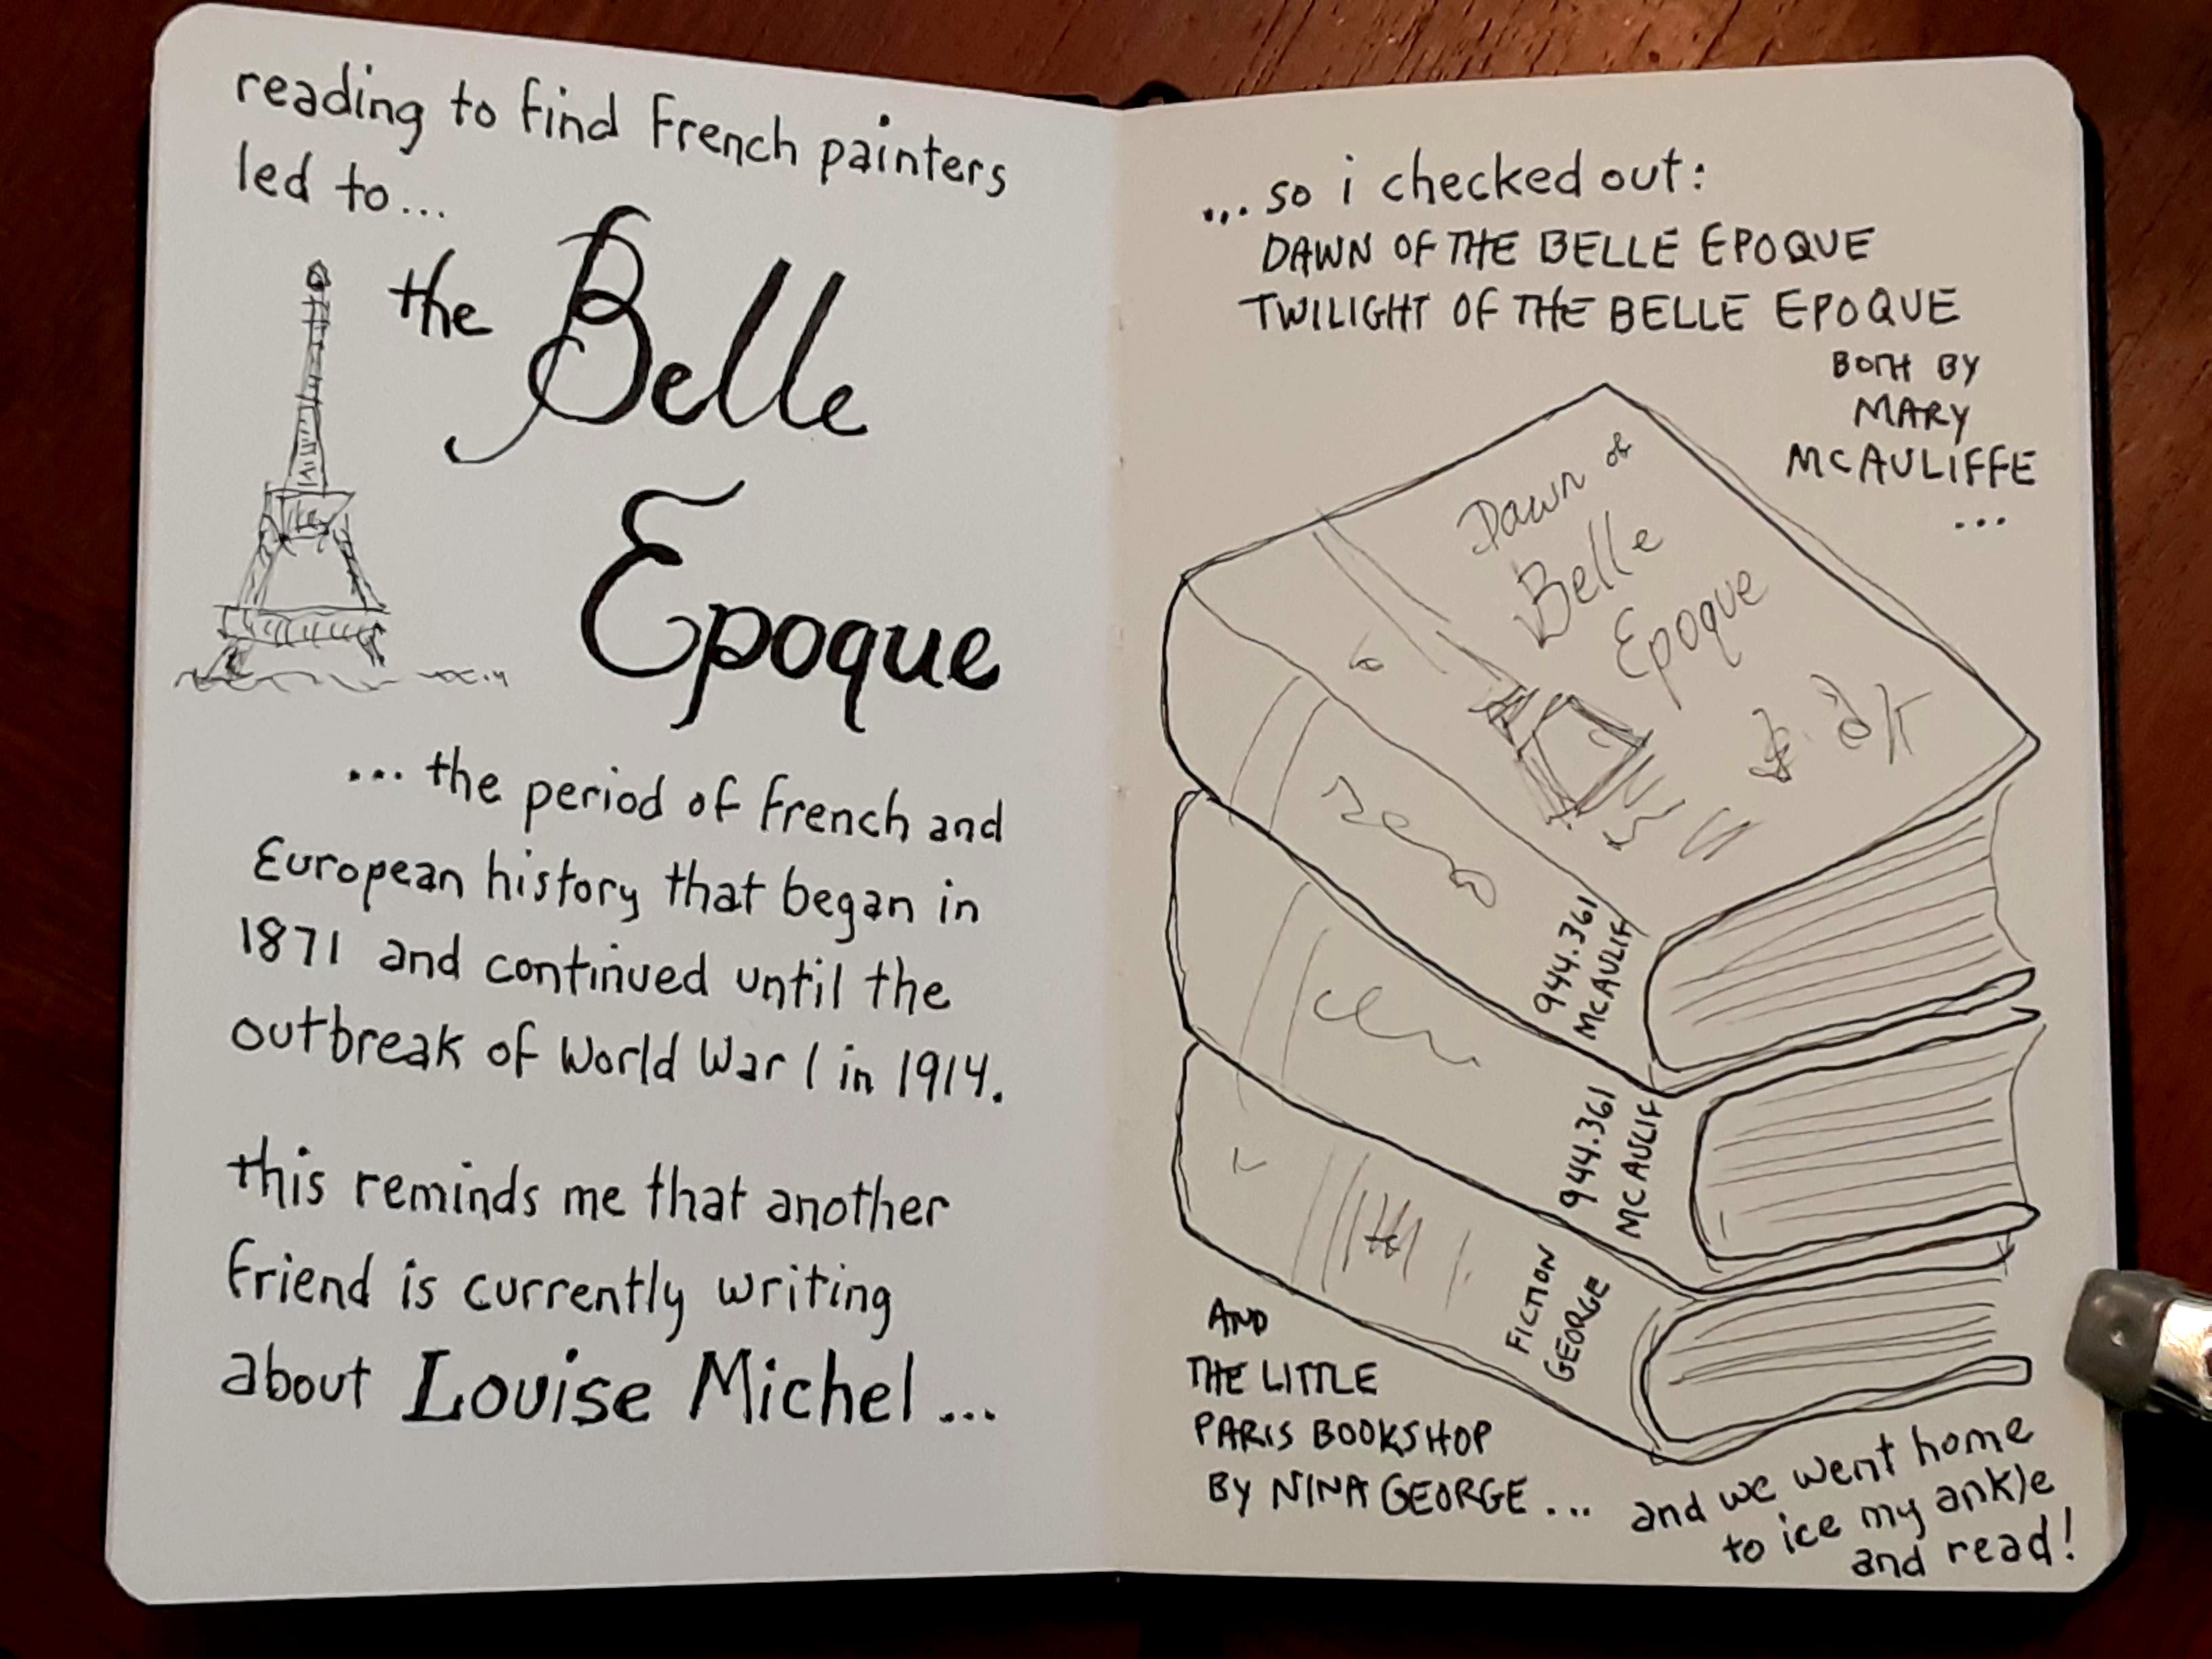 reading to find French painters
led to...
the Belle
Epoque
... the period of French and
European history that began in
1871 and continued until the
outbreak of World War I in 1914.
this reminds me that another
friend is currently writing
about Louise Michel ...
... so i checked out:
DAWN OF THE BELLE EPOQUE
TWILIGHT OF THE BELLE EPOQUE
BOTH BY
MARY
MCAULIFFE
...
Dawn of
Belle
Epoque
944.361
MCAULIF
944.361
MCAULIF
FICTION
GEORGE
AND
THE LITTLE
PARIS BOOKSHOP
BY NINA GEORGE ...
and we went home
to ice my ankle
and read!